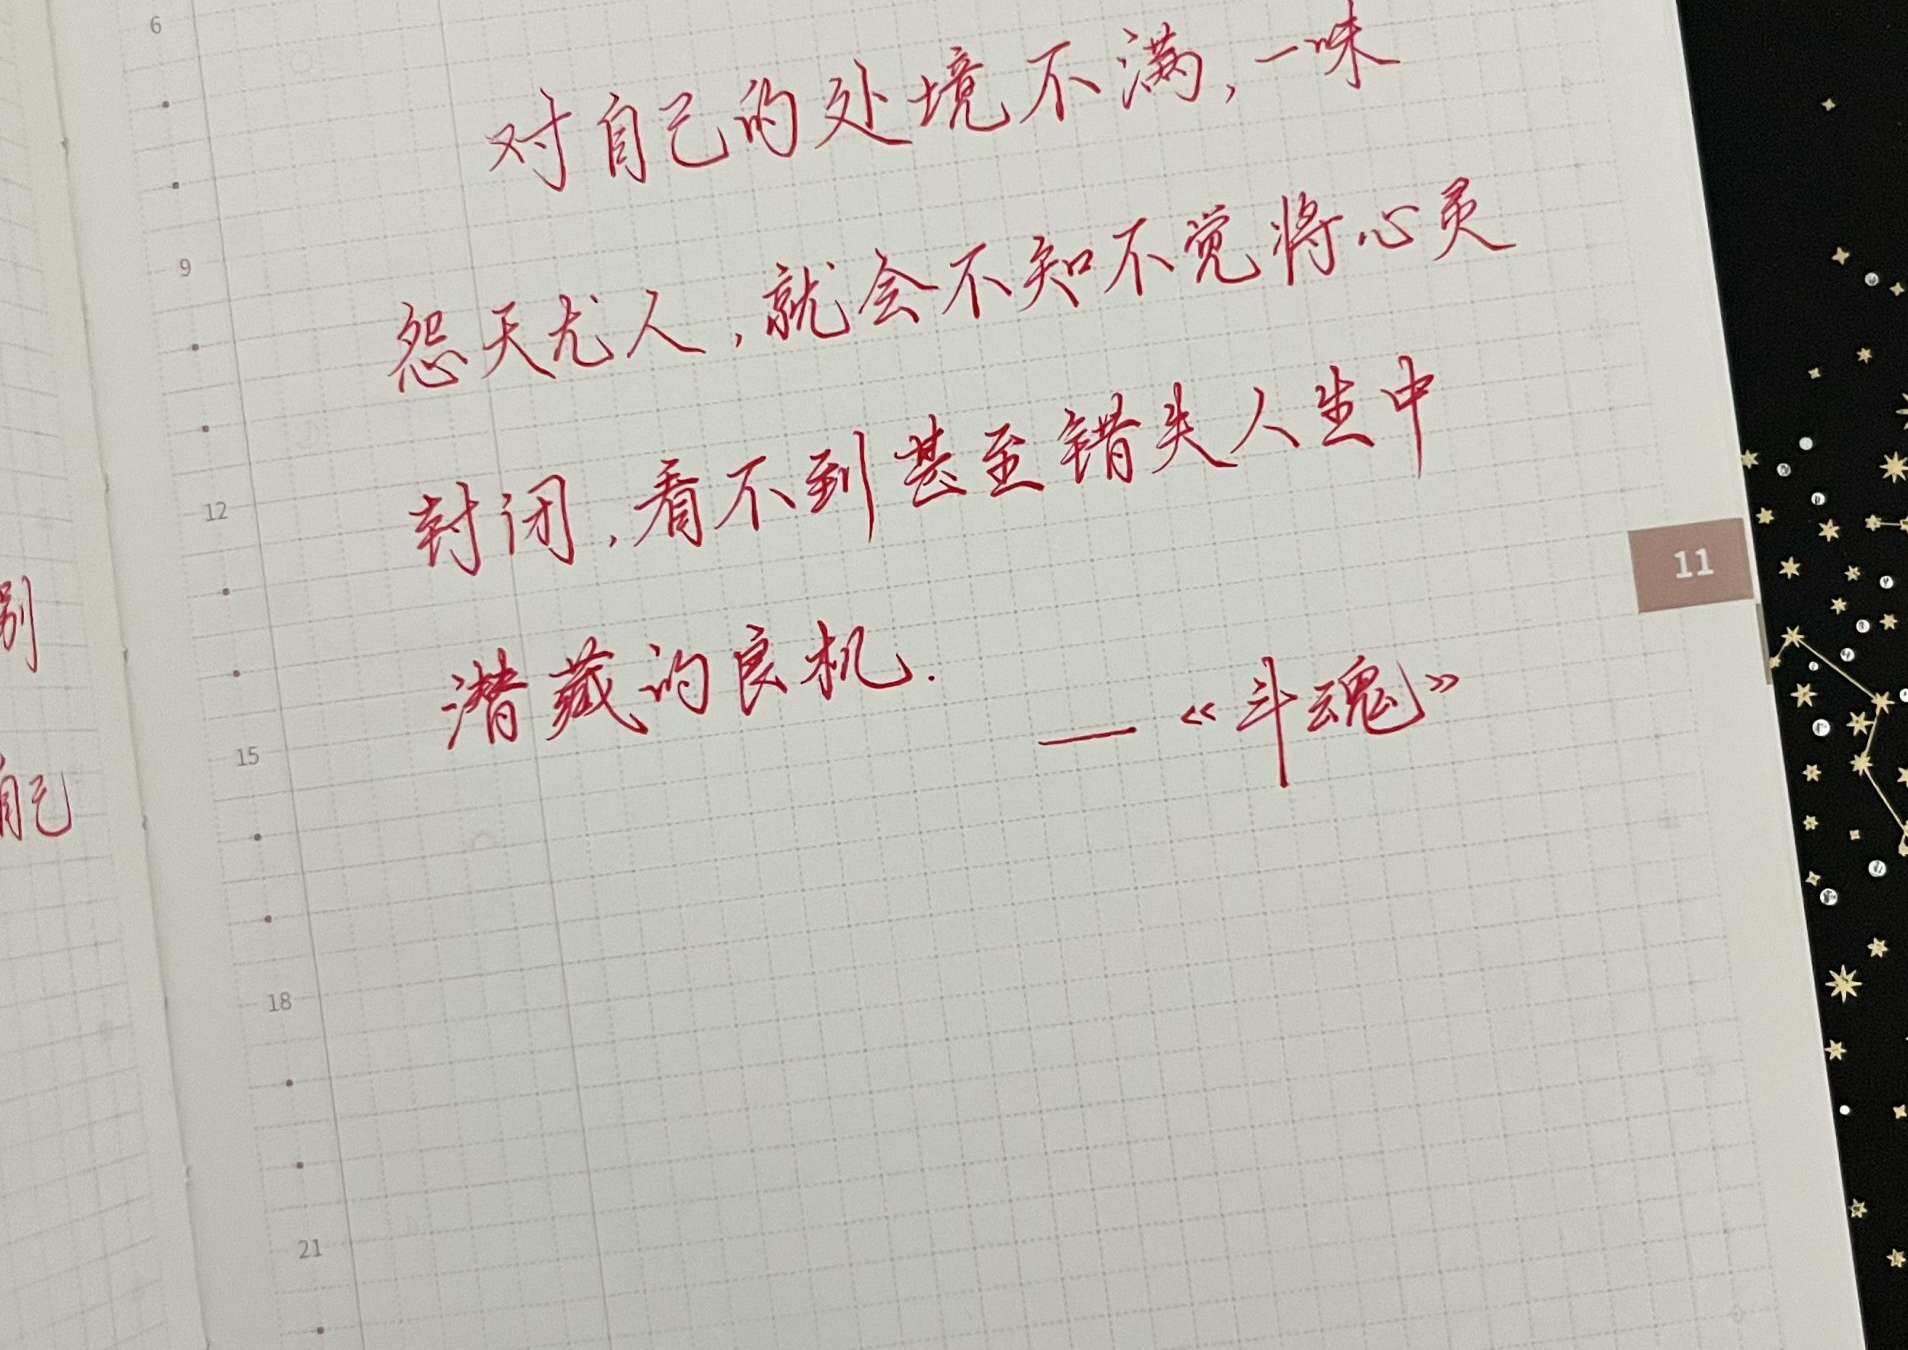 6
对自己的处境不满,一味
9
怨天尤人,就会不知不觉将心灵
12
封闭,看不到甚至错失人生中
11
潜藏的良机.
——《斗魂》
15
18
21
别
自己